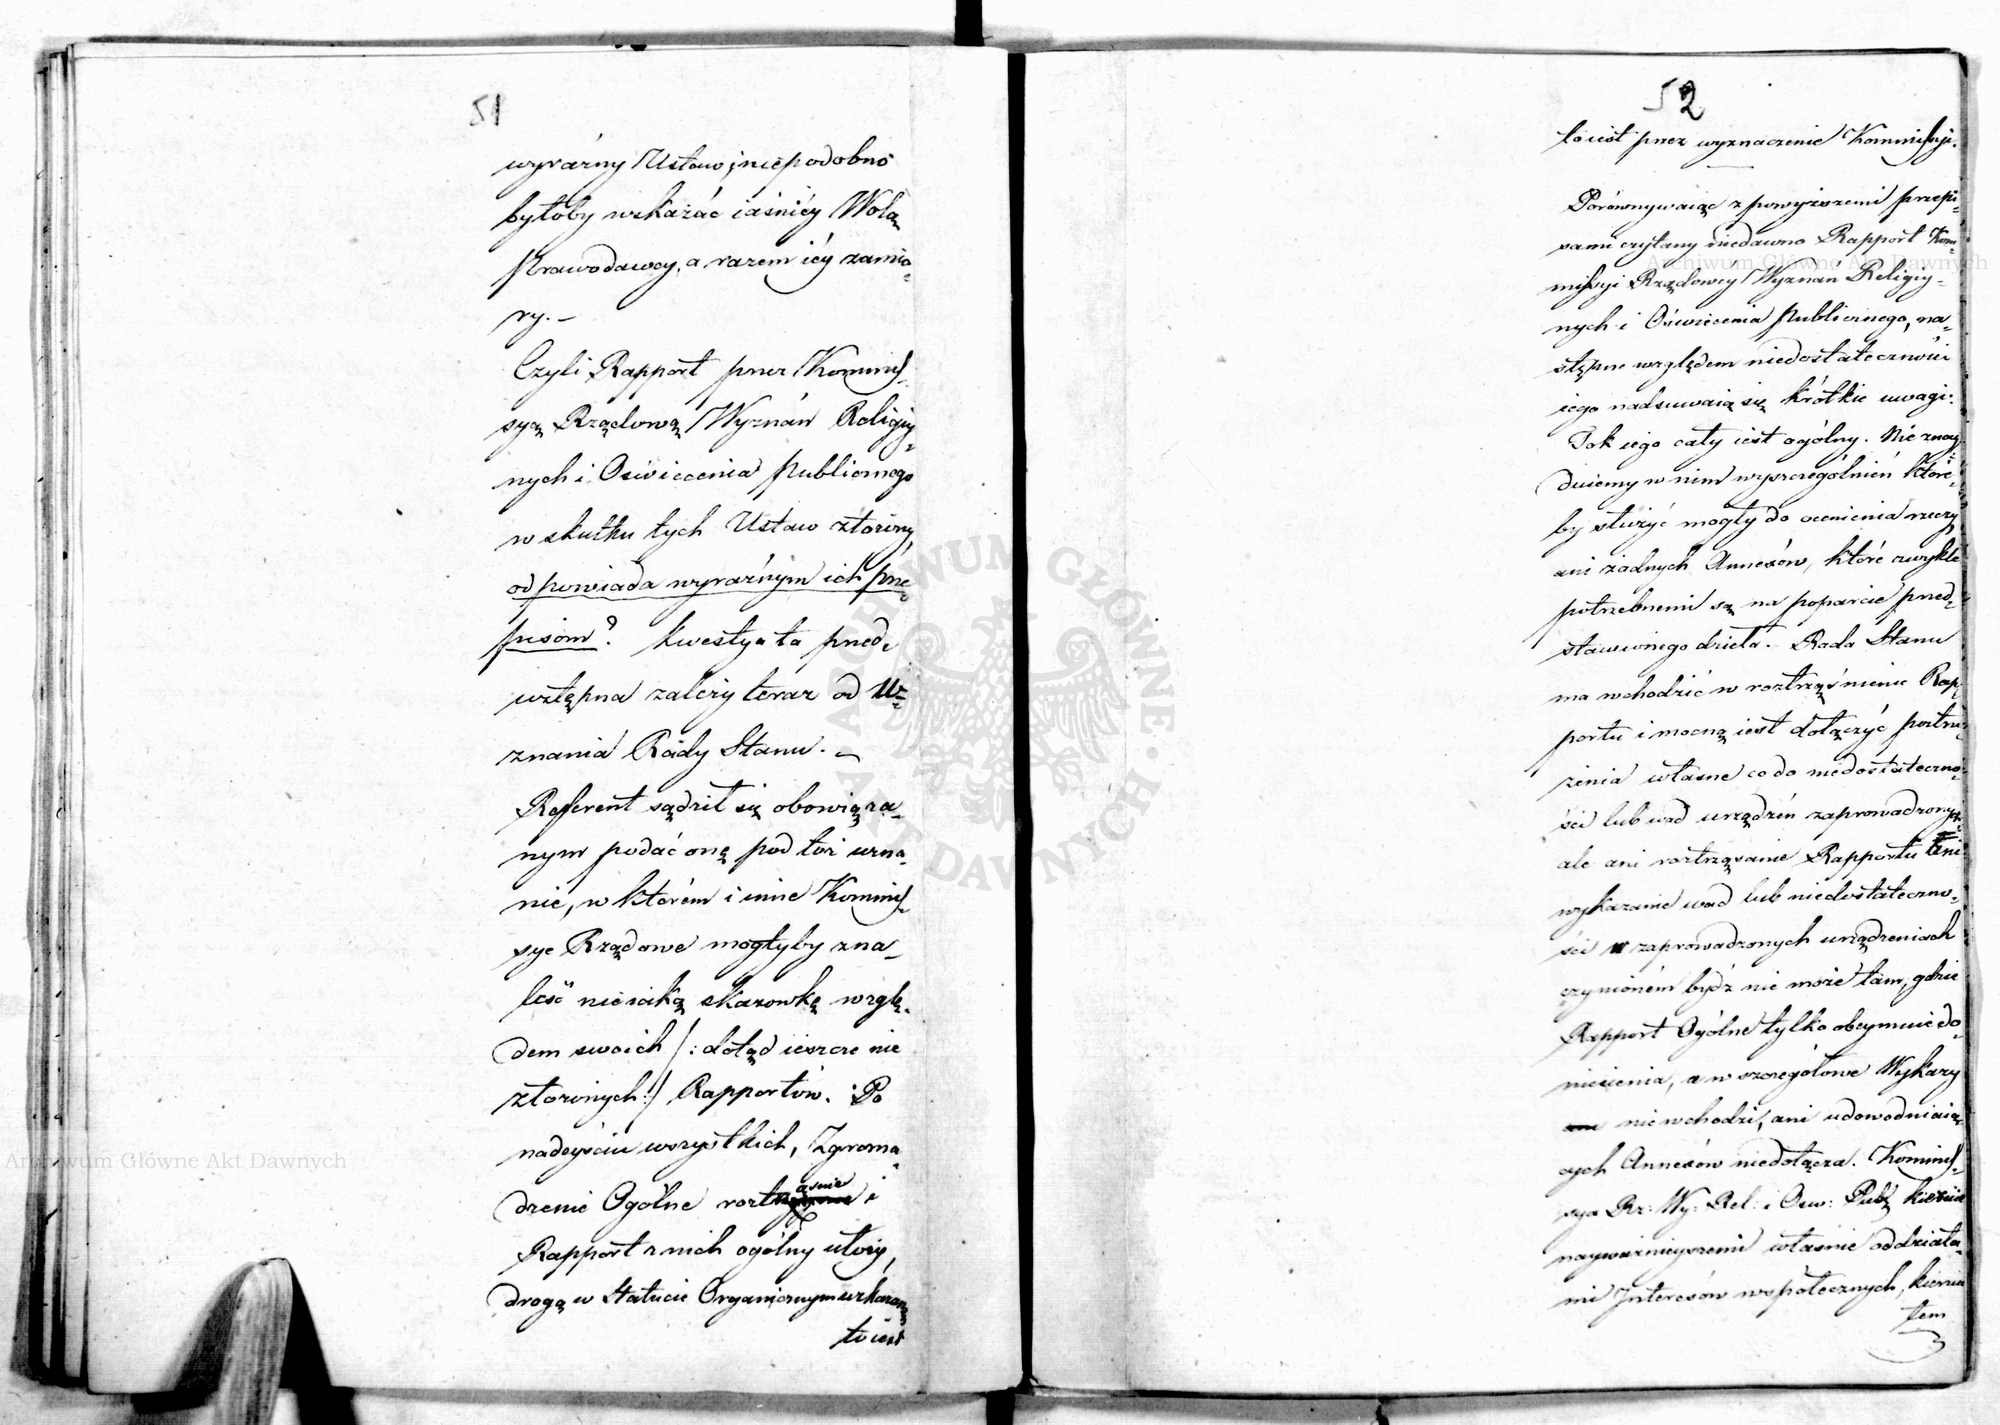 51
wyraźny Ustaw, niepodobno
byłoby wskazać iaśniéy Wolą
Prawodawcy, a razem iéy zamia-
ry. –
Czyli Rapport przez Kommis-
syą Rządową Wyznań Religiy-
nych i Oświecenia Publicznego
w skutku tych Ustaw złożony,
odpowiada wyraźnym ich prze-
pisom? kwestya ta przed-
wstępna zależy teraz od U-
znania Rady Stanu. –
Referent sądził się obowiąza-
nym podać onę pod toż uzna-
nie, w którém i inne Kommis-
sye Rządowe mogłyby zna-
leść nieiaką skazowkę wzglę-
dem swoich /: dotąd ieszcze nie
złożonych :/ Rapportów. Po
nadeyściu wszystkich, Zgroma-
dzenie Ogólne roztrząśnie i
Rapport z nich ogólny utoży,
drogą w Statucie Organicznym wskazaną
to iest
52
to iest przez wyznaczenie Kommissyi.
Porównywaiąc z powyższemi przepi-
sami czytany niedawno Rapport Kom-
missyi Rządowey Wyznań Religiy-
nych i Oświecenia Publicznego, na-
stępne względem niedostateczności
iego nadsuwaią się krótkie uwagi:
Tok iego cały iest ogólny. Nie znay-
duiemy w nim wyszczególnień któré-
by służyć mogły do ocenienia rzeczy
ani żadnych Annexów, które zwykle
potrzebnemi są na poparcie przed-
stawionego dzieła. Rada Stanu
ma wchodzić w roztrząśnienie Rap-
portu i mocną iest dołączyć postrze-
żenia własne co do niedostateczno-
ści lub wad urządzeń zaprowadzonych
ale ani roztrząsanie Rapportu ani
wykazanie wad lub niedostateczno-
ści w zaprowadzonych urządzeniach
czynioném bydź nie może tam, gdzie
Rapport Ogólne tylko obeymuie do-
niesienia, a w szczegółowe Wykazy
nie wchodzi, ani udowodniaią-
cych Annexów niedołącza. Kommis-
sya Rz: Wy: Rel: i Ośw: Publ: kieruie
nayważnieyszemi właśnie oddziała-
mi Interesów społecznych, kieru
tem